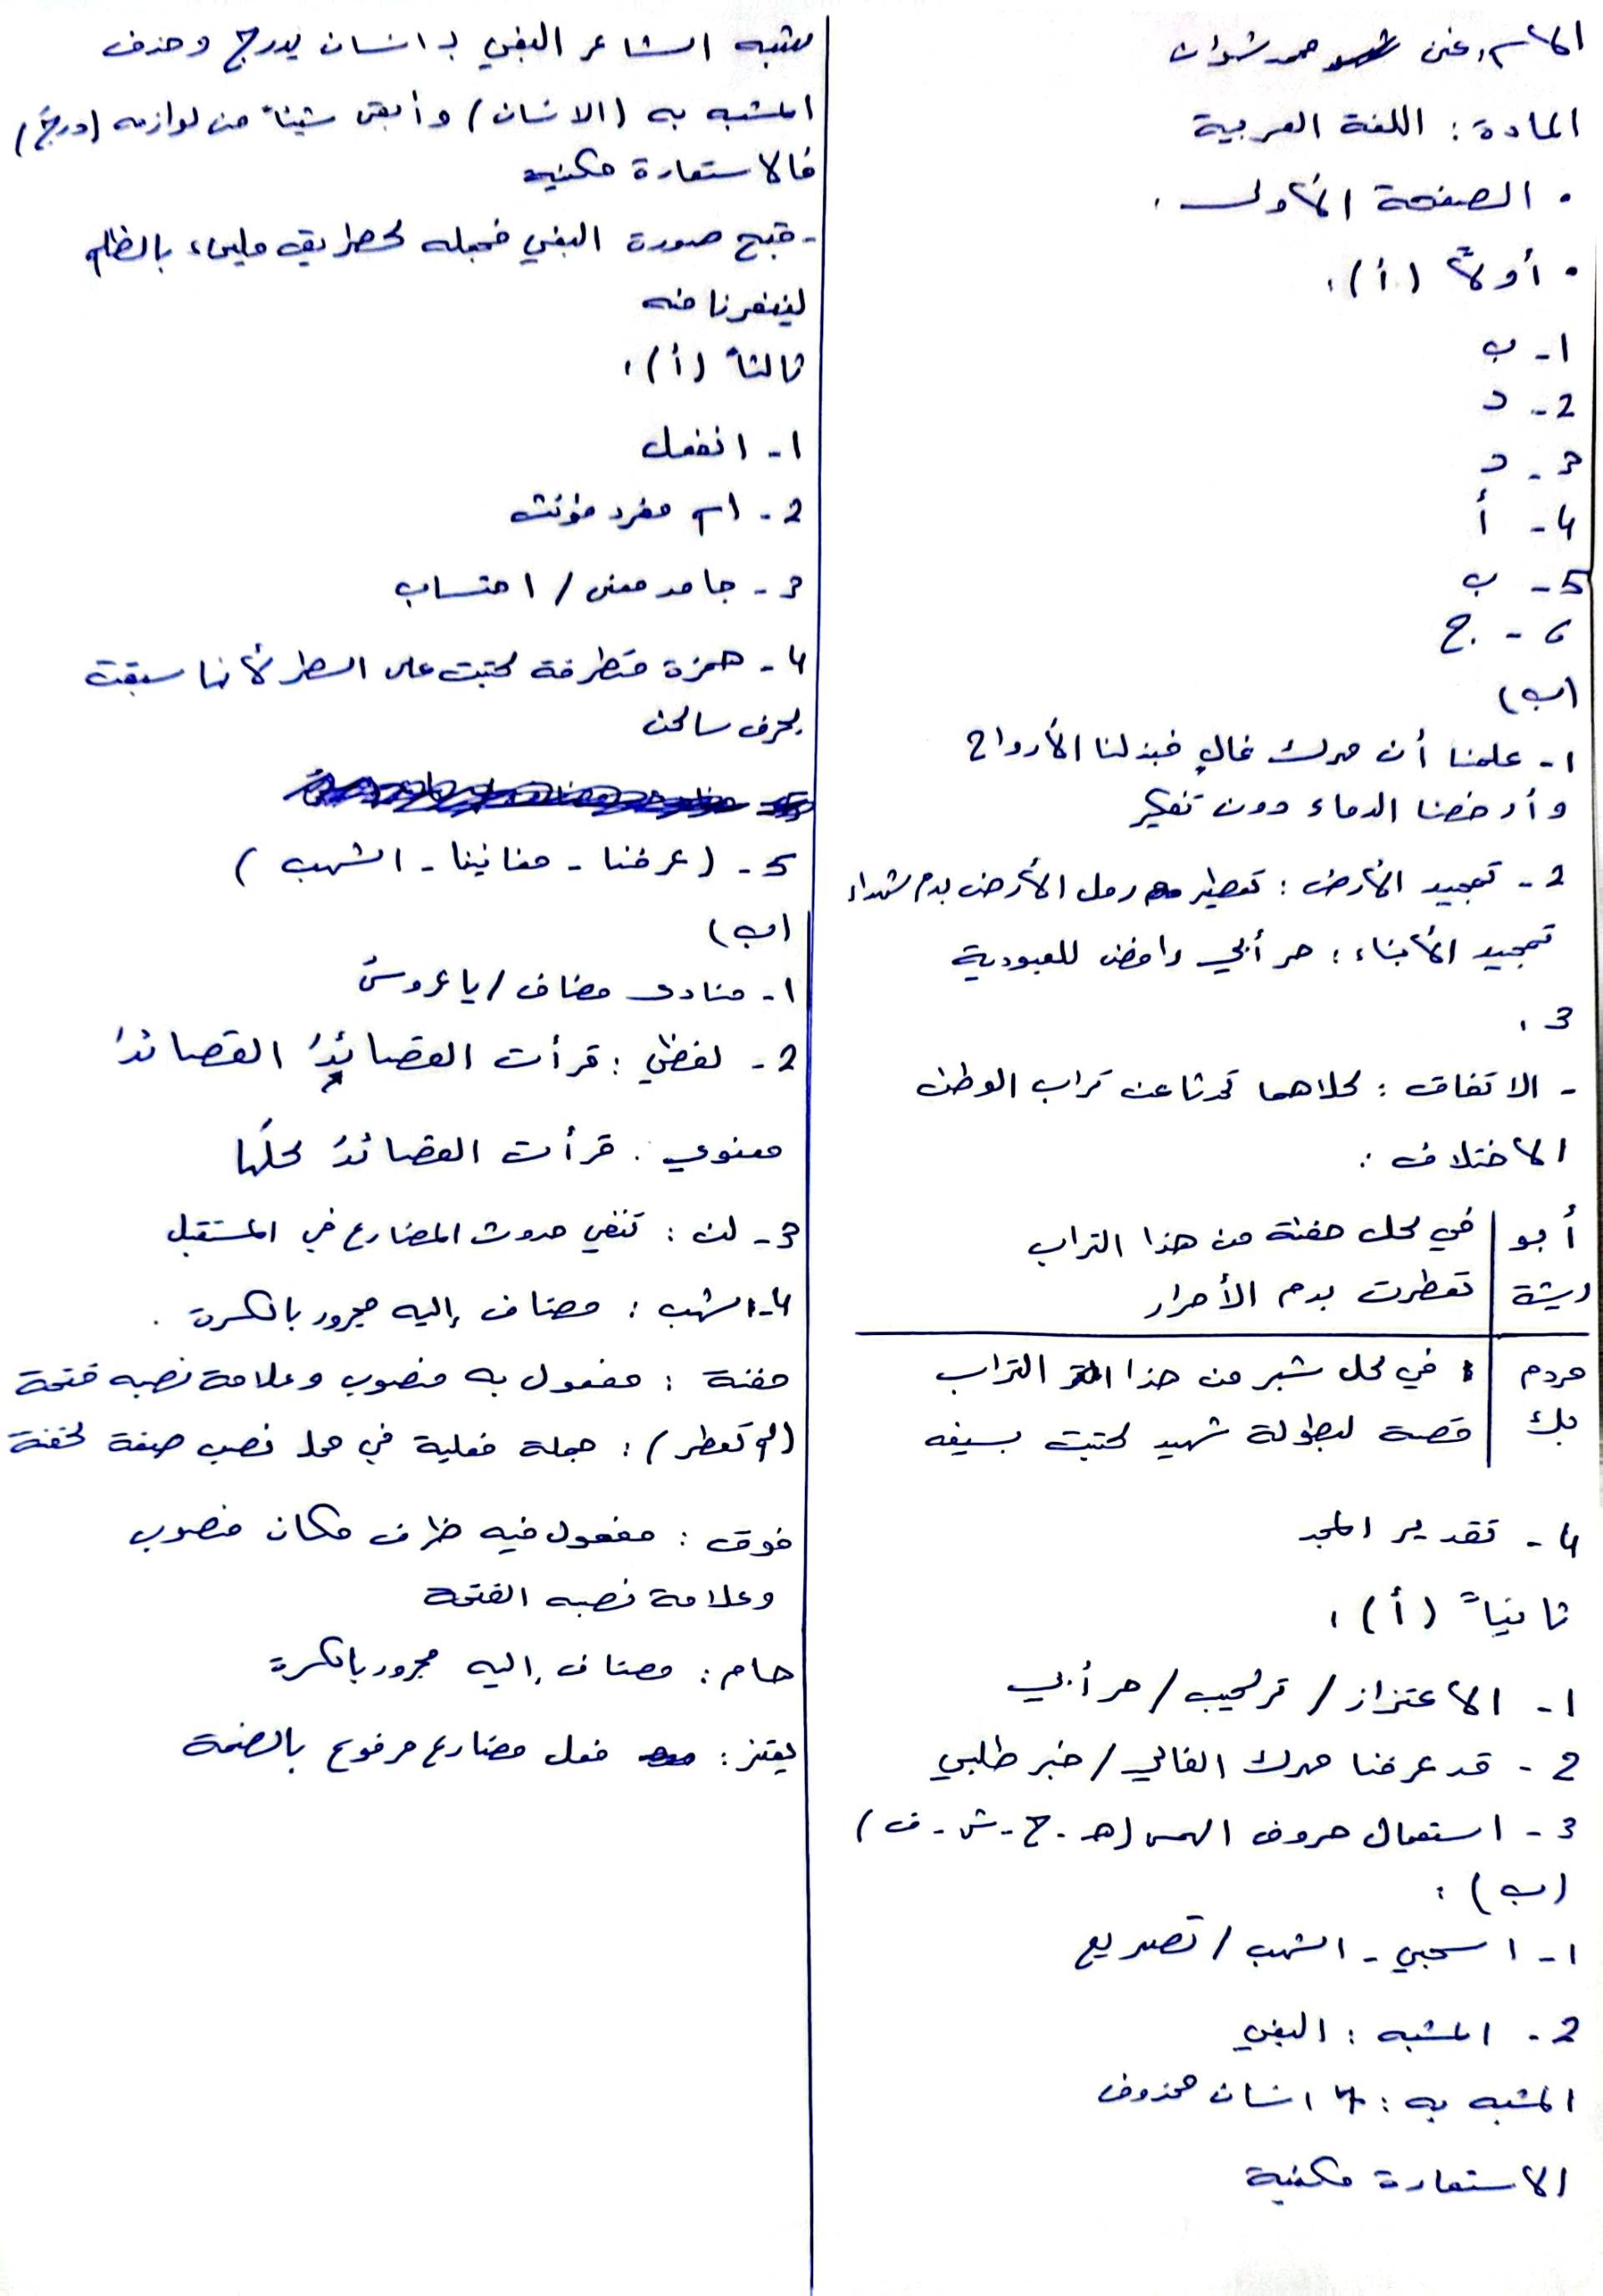 الاسم: غنى حمد شوان
المادة: اللغة العربية
• الصفحة الأولى:
• أولاً (أ):
1- ب
2- د
3- د
4- أ
5- ب
6- ج
(ب)
1- علمنا أن مهرك غالٍ فبذلنا الأرواح
وأرخصنا الدماء دون تفكير
2- تمجيد الأرض: تعطير رمل الأرض بدم شهداء
تمجيد الأبناء: حر أبي رافض للعبودية
3:
- الاتفاق: كلاهما تحدثا عن تراب الوطن
الاختلاف:
أبو ريشة | في كل حفنة من هذا التراب
تعطرت بدم الأحرار
مردم بك | في كل شبر من هذا التراب
قصة لبطولة شهيد كتبت بسيفه
4- تقدير المجد
ثانياً (أ):
1- الاعتزاز / تركيب / حر أبي
2- قد عرفنا مهرك الغالي / خبر طلبي
3- استعمال حروف الهمس (هـ - ح - ش - ف)
(ب):
1- اسحبي - الشهب / تصريع
2- المشبه: البغي
المشبه به: انسان محذوف
الاستعارة مكنية
شبه الشاعر البغي بـ انسان يدرج وحذف
المشبه به (الانسان) وأبقى شيئاً من لوازمه (درجَ)
فالاستعارة مكنية
- قبح صورة البغي فجعله كطريق مليء بالظلم
لينفرنا منه
ثالثاً (أ):
1- انفعل
2- اسم مفرد مؤنث
3- جامد معنى / احتساب
4- همزة متطرفة كتبت على السطر لأنها سبقت
بحرف ساكن
5- (عرفنا - مغانينا - الشهب)
(ب)
1- منادى مضاف / يا عروسَ
2- لفظي: قرأت القصائدَ القصائدَ
معنوي: قرأت القصائدَ كلَّها
3- لن: تنفي حدوث المضارع في المستقبل
4- الشهب: مضاف إليه مجرور بالكسرة.
حفنة: مفعول به منصوب وعلامة نصبه فتحة
(لم تعطر): جملة فعلية في محل نصب صفة لحفنة
فوق: مفعول فيه ظرف مكان منصوب
وعلامة نصبه الفتحة
هام: مضاف إليه مجرور بالكسرة
يعتز: فعل مضارع مرفوع بالضمة